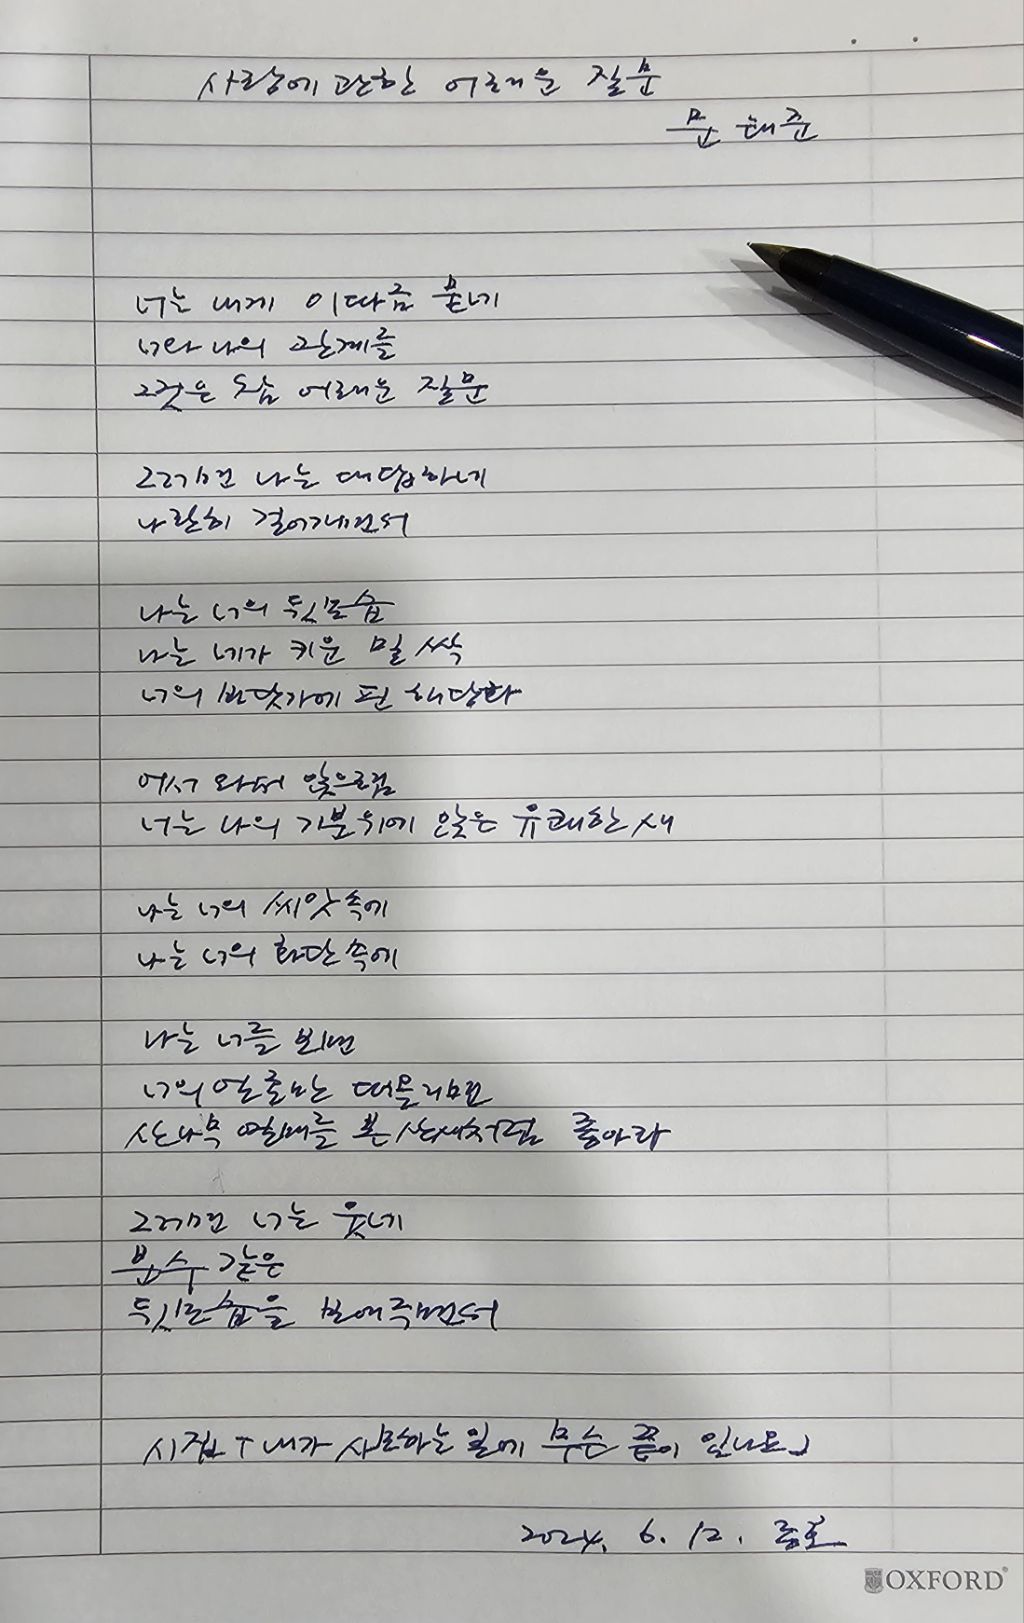 사랑에 관한 어려운 질문
문태준
너는 내게 이따금 묻네
너와 나의 관계를
그것은 참 어려운 질문
그러면 나는 대답하네
나란히 걸어가면서
나는 너의 뒷모습
나는 네가 키운 밀 싹
너의 바닷가에 핀 해당화
어서 와서 앉으렴
너는 나의 기분위에 앉은 유쾌한 새
나는 너의 씨앗속에
나는 너의 화단속에
나는 너를 보면
너의 얼굴만 떠올리면
산나무 열매를 본 산새처럼 좋아라
그러면 너는 웃네
분수 같은
뒷모습을 보여주면서
시집「내가 사모하는 일에 무슨 끝이 있나요」
2024. 6. 12.
OXFORD